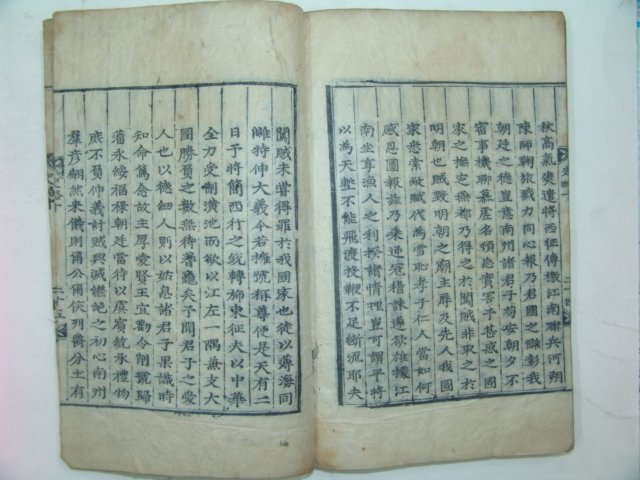 秋高氣爽遣將西征傳檄江南聯兵河朔
陳師鞠旅戮力同心報乃君國之讎彰我
朝廷之德豈意南州諸君子苟安朝夕不
審事機聊慕虛名頓忘實害予甚惑國
家之撫定燕都乃得之於闖賊非取之於
明朝也賊毀明朝之廟主辱及先人我國
家悉索敝賦代爲雪恥孝子仁人當如何
感恩圖報茲乃乘逆冦稽誅遽欲雄據江
南坐享漁人之利揆諸情理豈可謂平將
以爲天塹不能飛渡投鞭不足斷流耶夫
闖賊未嘗得罪於我國家也徒以薄海同
讎特伸大義今若擁號稱尊便是天有二
日予將簡西行之銳轉旆東征夫以中華
全力受制潢池而欲以江左一隅兼支大
國勝負之數無待蓍龜矣予聞君子之愛
人也以德細人則以姑息諸君子果識時
知命篤念故主厚愛賢王宜勸令削號歸
藩永綏福祿朝廷當待以虞賓統承禮物
底不負伸義討賊興滅繼絶之初心南州
羣彦翩然來儀則爾公爾侯列爵分土有